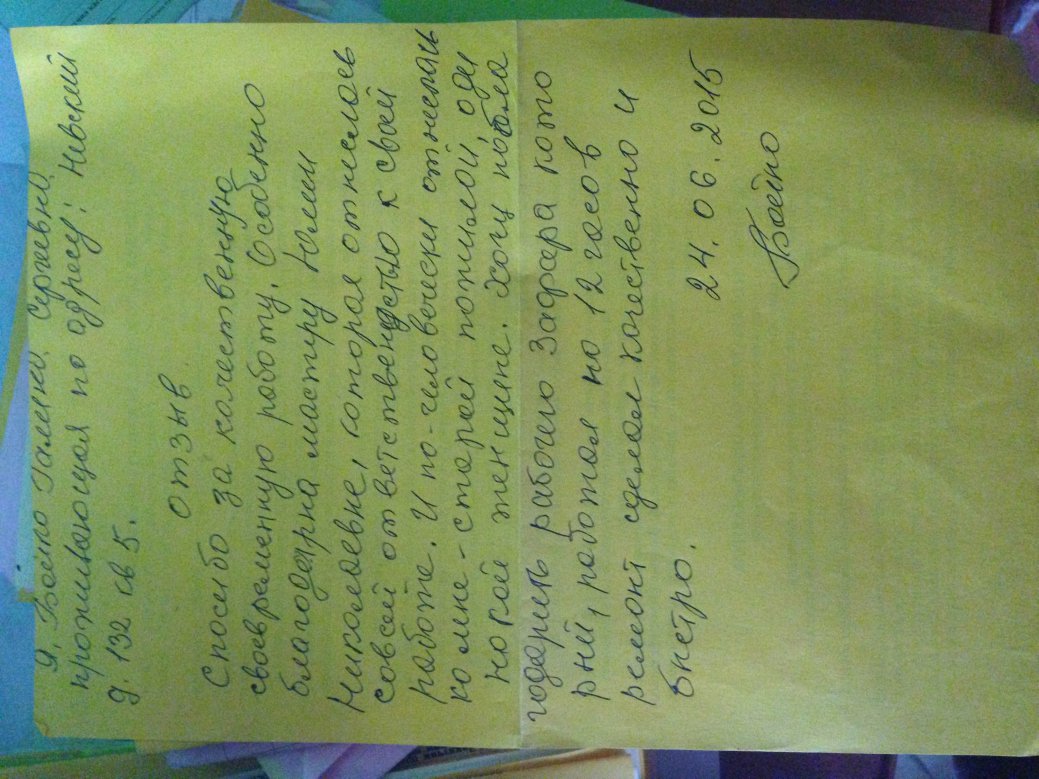 Я, Бойко Галина Сергеевна
проживающая по адресу: Невский
д. 132 кв 5.
отзыв.
Спосибо за качественную
своевременную работу. Особенно
благодарна мастеру Юлии
Николаевне, которая отнеслась
со всей ответственностью к своей
работе. И по-человечески отнеслась
ко мне - старой пожилой, оди
нокой женщине. Хочу побла
годарить рабочего Зафара кото
рый, работал по 12 часов
ремонт сделал качественно и
быстро.
24.06.2015
Бойко